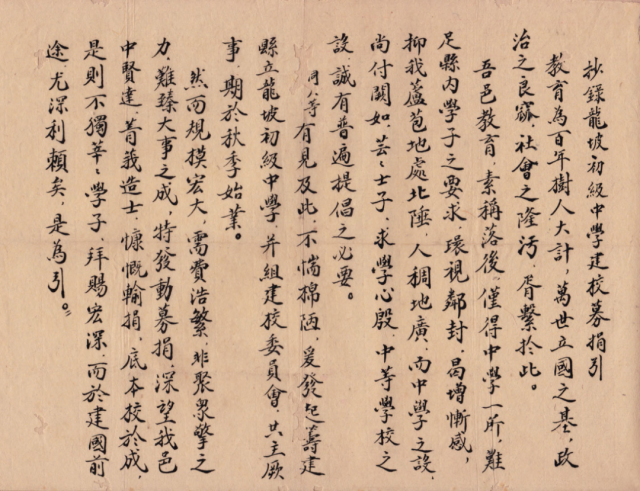 抄錄龍坡初級中學建校募捐引
教育為百年樹人大計，萬世立國之基，政
治之良窳，社會之隆污，胥繫於此。
吾邑教育，素稱落後，僅得中學一所，難
足縣內學子之要求，環視鄰封，曷增慚感，
抑我蘆苞地處北陲，人稠地廣，而中學之設，
尚付闕如，芸々士子，求學心殷，中等學校之
設，誠有普遍提倡之必要。
同人等有見及此，不惴棉陋，爰發起籌建
縣立龍坡初級中學，并組建校委員會，共主厥
事，期於秋季始業。
然而規模宏大，需費浩繁，非聚眾擎之
力，難臻大事之成，特發動募捐，深望我邑
中賢達，菁莪造士，慷慨輸捐，底本校於成，
是則不獨莘々學子，拜賜宏深，而於建國前
途尤深利賴矣，是為引。